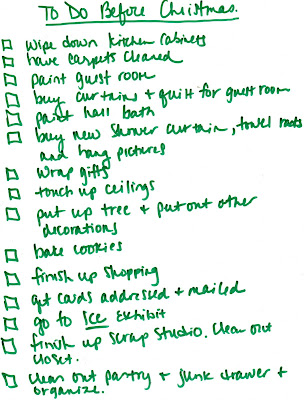 To Do Before Christmas.
wipe down kitchen cabinets
have carpets cleaned
paint guest room
buy curtains + quilt for guest room
paint hall bath
buy new shower curtain, towel rods
and hang pictures
wrap gifts
touch up ceilings
put up tree + put out other
decorations
bake cookies
finish up shopping
get cards addressed + mailed
go to Ice Exhibit
finish up scrap studio. Clean out
closet.
clean out pantry + junk drawer +
organize.